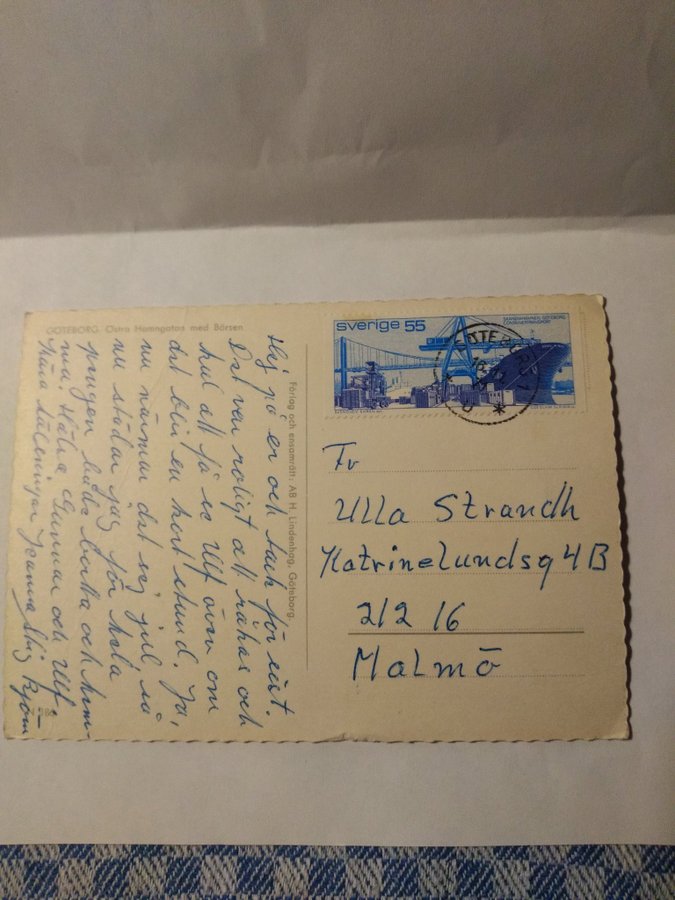 GÖTEBORG. Östra Hamngatan med Börsen
Hej på er och tack för sist.
Det var roligt att råkas och
kul att få se Ulf även om
det blev en kort stund. Ja,
nu närmar det sig jul så
nu stålar jag för hela
pengen både borta och hem-
ma. Hälsa Gunnar och Ulf.
Kära hälsningar
Förlag och ensamrätt: AB H. Lindenhag, Göteborg.
sverige 55
SKANDIAHAMNEN, GÖTEBORG
CONTAINERTRANSPORT
Fr
Ulla Strandh
Katrinelundsg 4B
212 16
Malmö